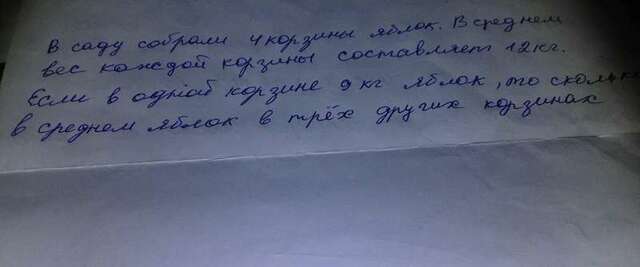 В саду собрали 4 корзины яблок. В среднем
вес каждой корзины составляет 12 кг.
Если в одной корзине 9 кг яблок, то
в среднем яблок в трёх других корзинах